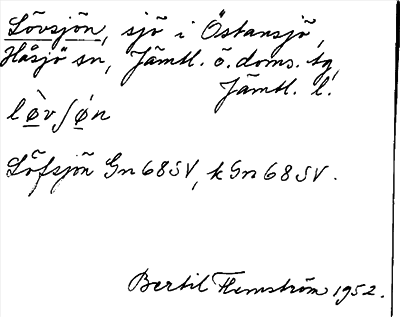 Lövsjön, sjö i Östansjö,
Håsjö sn, Jämtl. ö. doms. tg,
Jämtl. l.
lø̀vʃǿn
Löfsjön Gn 68 SV, k Gn 68 SV.
Bertil Flemström 1952.